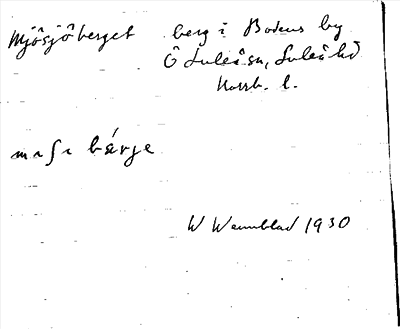 Mjösjöberget berg i Bodens by
Ö Luleå sn, Luleå hd
Norrb. l.
W Wennblad 1930